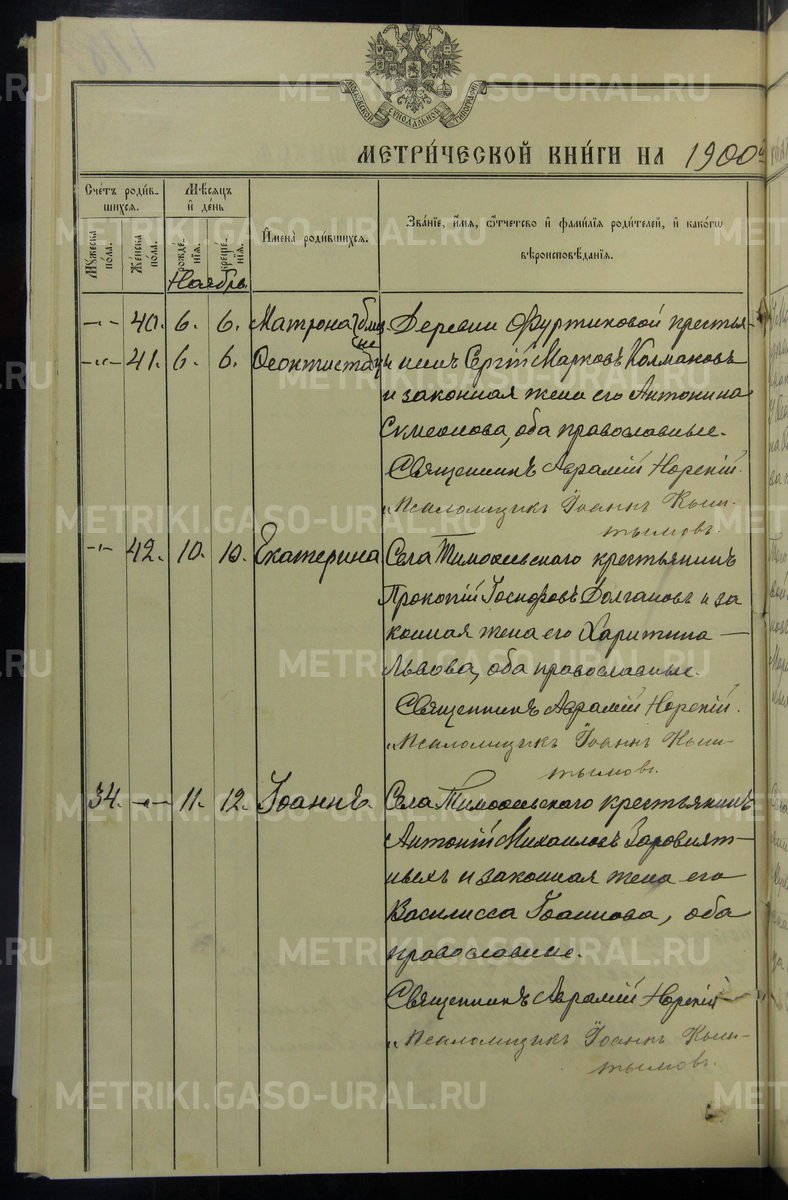 МОСКОВСКОЙ СѴНОДАЛЬНОЙ ТИПОГРАФІИ
МЕТРИ́ЧЕСКОЙ КНИ́ГИ НА 1900й
Счéтъ роди́в-
шихся.
Мѣ́сяцъ
и҆ дéнь
Мꙋ́жеска
пóла.
Жéнска
пóла.
рождé-
нїѧ.
крещé-
нїѧ.
И҆менà роди́вшихся.
Звáнїе, и҆́мѧ, ѻ҆́тчество и҆ фами́лїѧ роди́телей, и҆ какóгѡ
вѣроисповѣ́данїѧ.
Ноябрь
-"- 40. 6. 6. Матрона близ- Деревни Фуртиковой крестья-
-"- 41. 6. 6. Феоктиста цы нинъ Сергій Марковъ Колмаковъ
и законная жена его Антонина
Симеонова, оба православные.
Священникъ Аврамій Норскій.
Псаломщикъ Іоаннъ Кыш-
тымовъ.
-"- 42. 10. 10. Екатерина Села Тимоѳеевскаго крестьянинъ
Прокопій Іосифовъ Долгановъ и за
конная жена его Харитина —
Львова, оба православные.
Священникъ Аврамій Норскій.
Псаломщикъ Іоаннъ Кыш-
тымовъ.
34. -"- 11. 12. Іоаннъ. Села Тимоѳеевскаго крестьянинъ
Антоній Михаиловъ Заровнят-
ныхъ и законная жена его
Василисса Іоаннова, оба
православные.
Священникъ Аврамій Норскій
Псаломщикъ Іоаннъ Кыш-
тымовъ.
METRIKI.GASO-URAL.RU